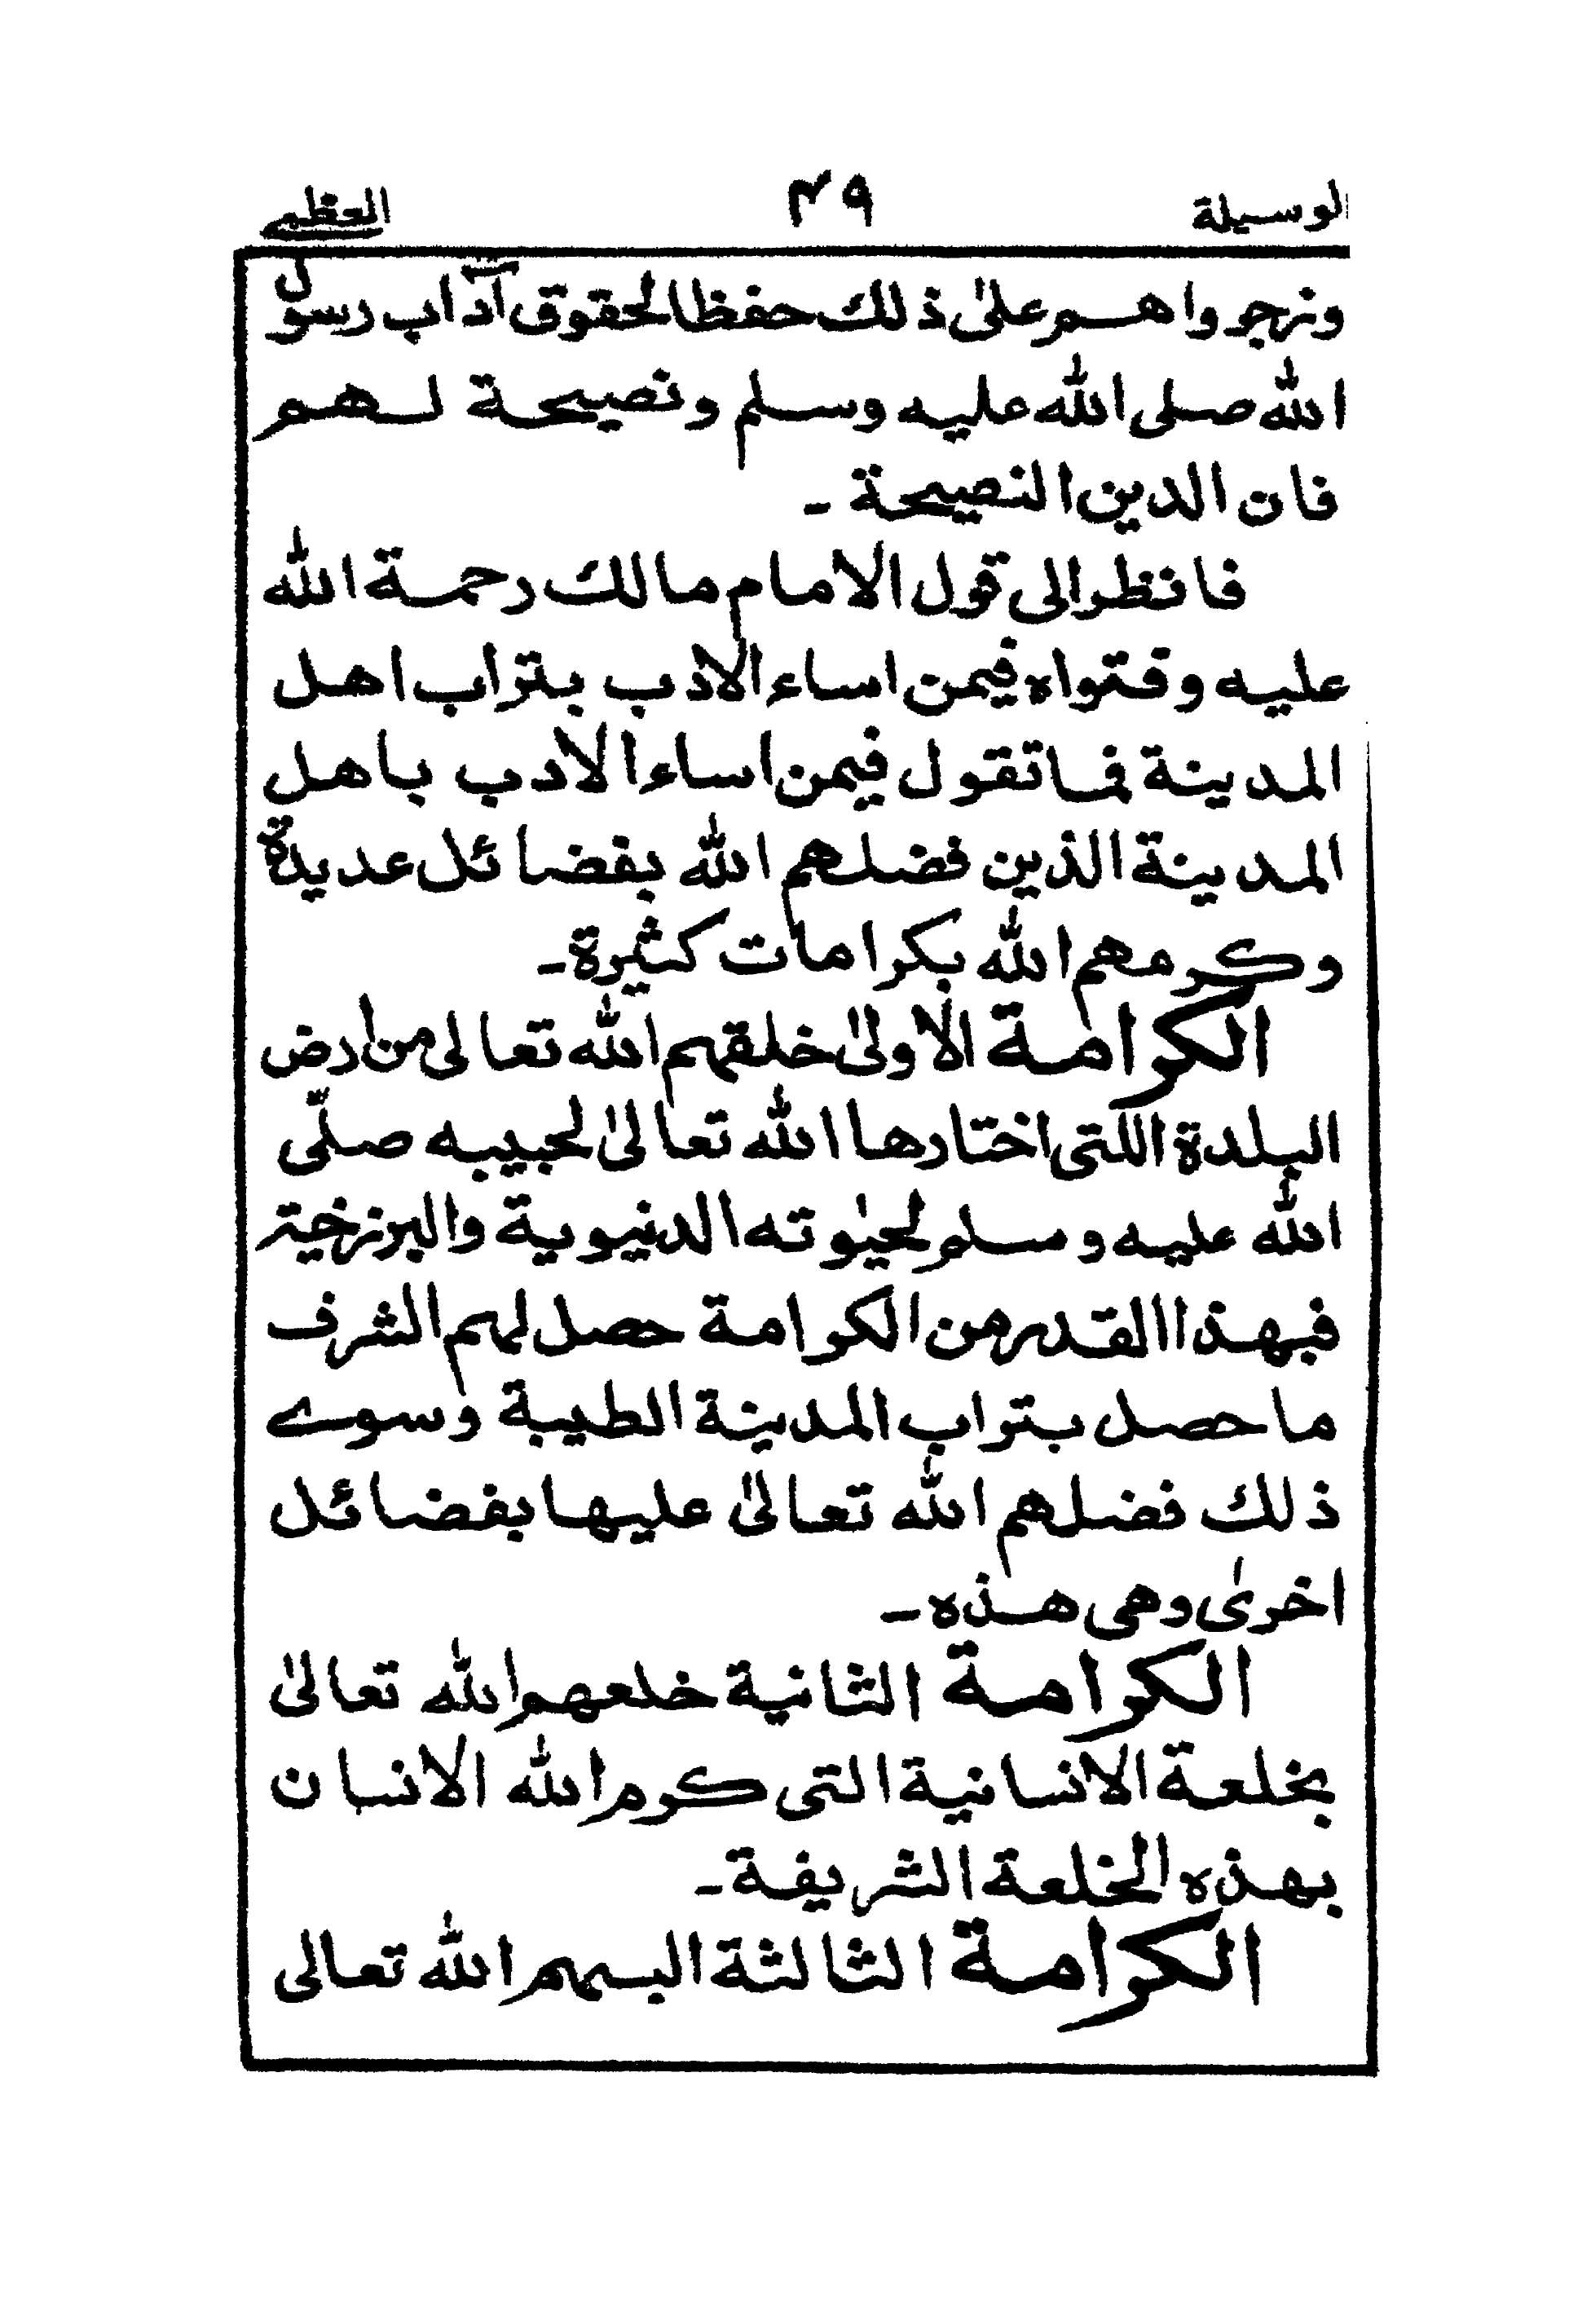 الوسيلة ٤٩ العظمى
وزجروا هم على ذلك حفظا لحقوق آداب رسول
الله صلى الله عليه وسلم ونصيحة لهم
فان الدين النصيحة ـ
فانظر الى قول الامام مالك رحمة الله
عليه وفتواه فيمن اساء الادب بتراب اهل
المدينة فما تقول فيمن اساء الادب باهل
المدينة الذين فضلهم الله بفضائل عديدة
وكرمهم الله بكرامات كثيرة ـ
الكرامة الاولىٰ خلقهم الله تعالى من ارض
البلدة اللتى اختارها الله تعالىٰ لحبيبه صلّى
الله عليه وسلم لحيٰوته الدنيوية والبرزخية
فبهذا القدر من الكرامة حصل لهم الشرف
ما حصل بتراب المدينة الطيبة وسوے
ذلك فضلهم الله تعالىٰ عليها بفضائل
اخرىٰ وهى هذه ـ
الكرامة الثانية خلعهم الله تعالىٰ
بخلعة الانسانية التى كرم الله الانسان
بهذه الخلعة الشريفة ـ
الكرامة الثالثة البسهم الله تعالى